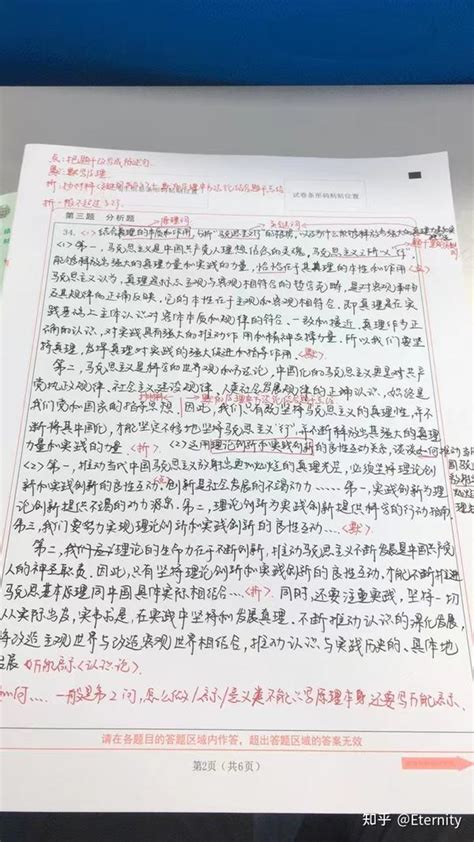 点:把题干仅写成陈述句.
试卷条形码粘贴位置
第三题 分析题
原理词
关键词
34. <1> 结合真理的本性和作用,分析"马克思主义行"的
<1> 第一,马克思主义是中国共产党人理想信念的灵魂,马克思主义之所以"行",
能够释放出强大的真理力量和实践的力量,恰恰在于其真理的本性和作用<点>
马克思认为,真理是对
及其规律的正确反映,它的本性在于主观和客观相符合,即真理是在实
践基础上主体认识对客体本质和规律的符合、一致和接近.真理作为正
确的认识,对实践具有强大的推动作用和精神支撑力量.所以我们要坚
持真理,发挥真理对实践的强大促进和指导作用.
第二,马克思主义是科学的世界观和方法论,中国化的马克思主义是对共产
党执政规律、社会主义建设规律、人类社会发展规律的正确认识,始终是
我们党和国家的指导思想.因此,我们只有既坚持马克思主义的真理性,并不
断将其中国化,才能坚定不移地坚持马克思主义"行",并不断释放出其强大的真理
力量和实践的力量.<析> <2>运用理论创新和实践创新的良性互动关系,谈谈如何推动当
<2> 第一,推动当代中国马克思主义放射出更加灿烂的真理光芒,必须坚持理论创
新和实践创新的良性互动.创新是社会发展的不竭动力……第一,实践创新为理
论创新提供不竭的动力源泉.第二,理论创新为实践创新提供科学的行动指南.
第三,我们要努力实现理论创新和实践创新的良性互动…
第二,我们 理论的生命力在于不断创新,推动马克思主义不断发展是中国共产党
人的神圣职责.因此,只有坚持理论创新和实践创新的良性互动,才能不断推进
马克思基本原理同中国具体实际相结合…<析>.同时,还要注重实践,坚持一切
从实际出发,实事求是,在实践中坚持和发展真理.不断推动认识的深化发展,
将改造主观世界与改造客观世界相结合,推动认识与实践历史的、具体地
发展 方法论<认识论>.
如何…. 一般是第2问,怎么做/启示/意义类不能只写原理本身,还要写方法论
请在各题目的答题区域内作答,超出答题区域的答案无效
第2页(共6页)
知乎 @Eternity